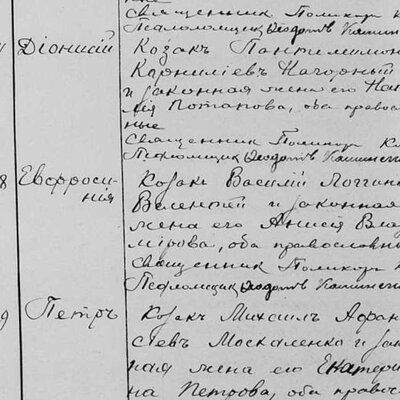 Священник Поликарп К
Псаломщик Ѳеодотъ Камински
Діонисій
Козакъ Пантелимон
Корниліевъ Нагорный
и законная жена его На
лія Потапова, оба право
ные
Священник Поликарп К
Псаломщик Ѳеодотъ Каминск
8
Евфроси-
нія
Козак Василій Логгин
и законная
жена его Анисія Вла
мірова, оба православны
Священник Поликарп
Псаломщик Ѳеодотъ Каминск
9
Петръ
Козакъ Михаилъ Афан
сіевъ Москаленко и зак
ная жена его Екатери
на Петрова, оба право